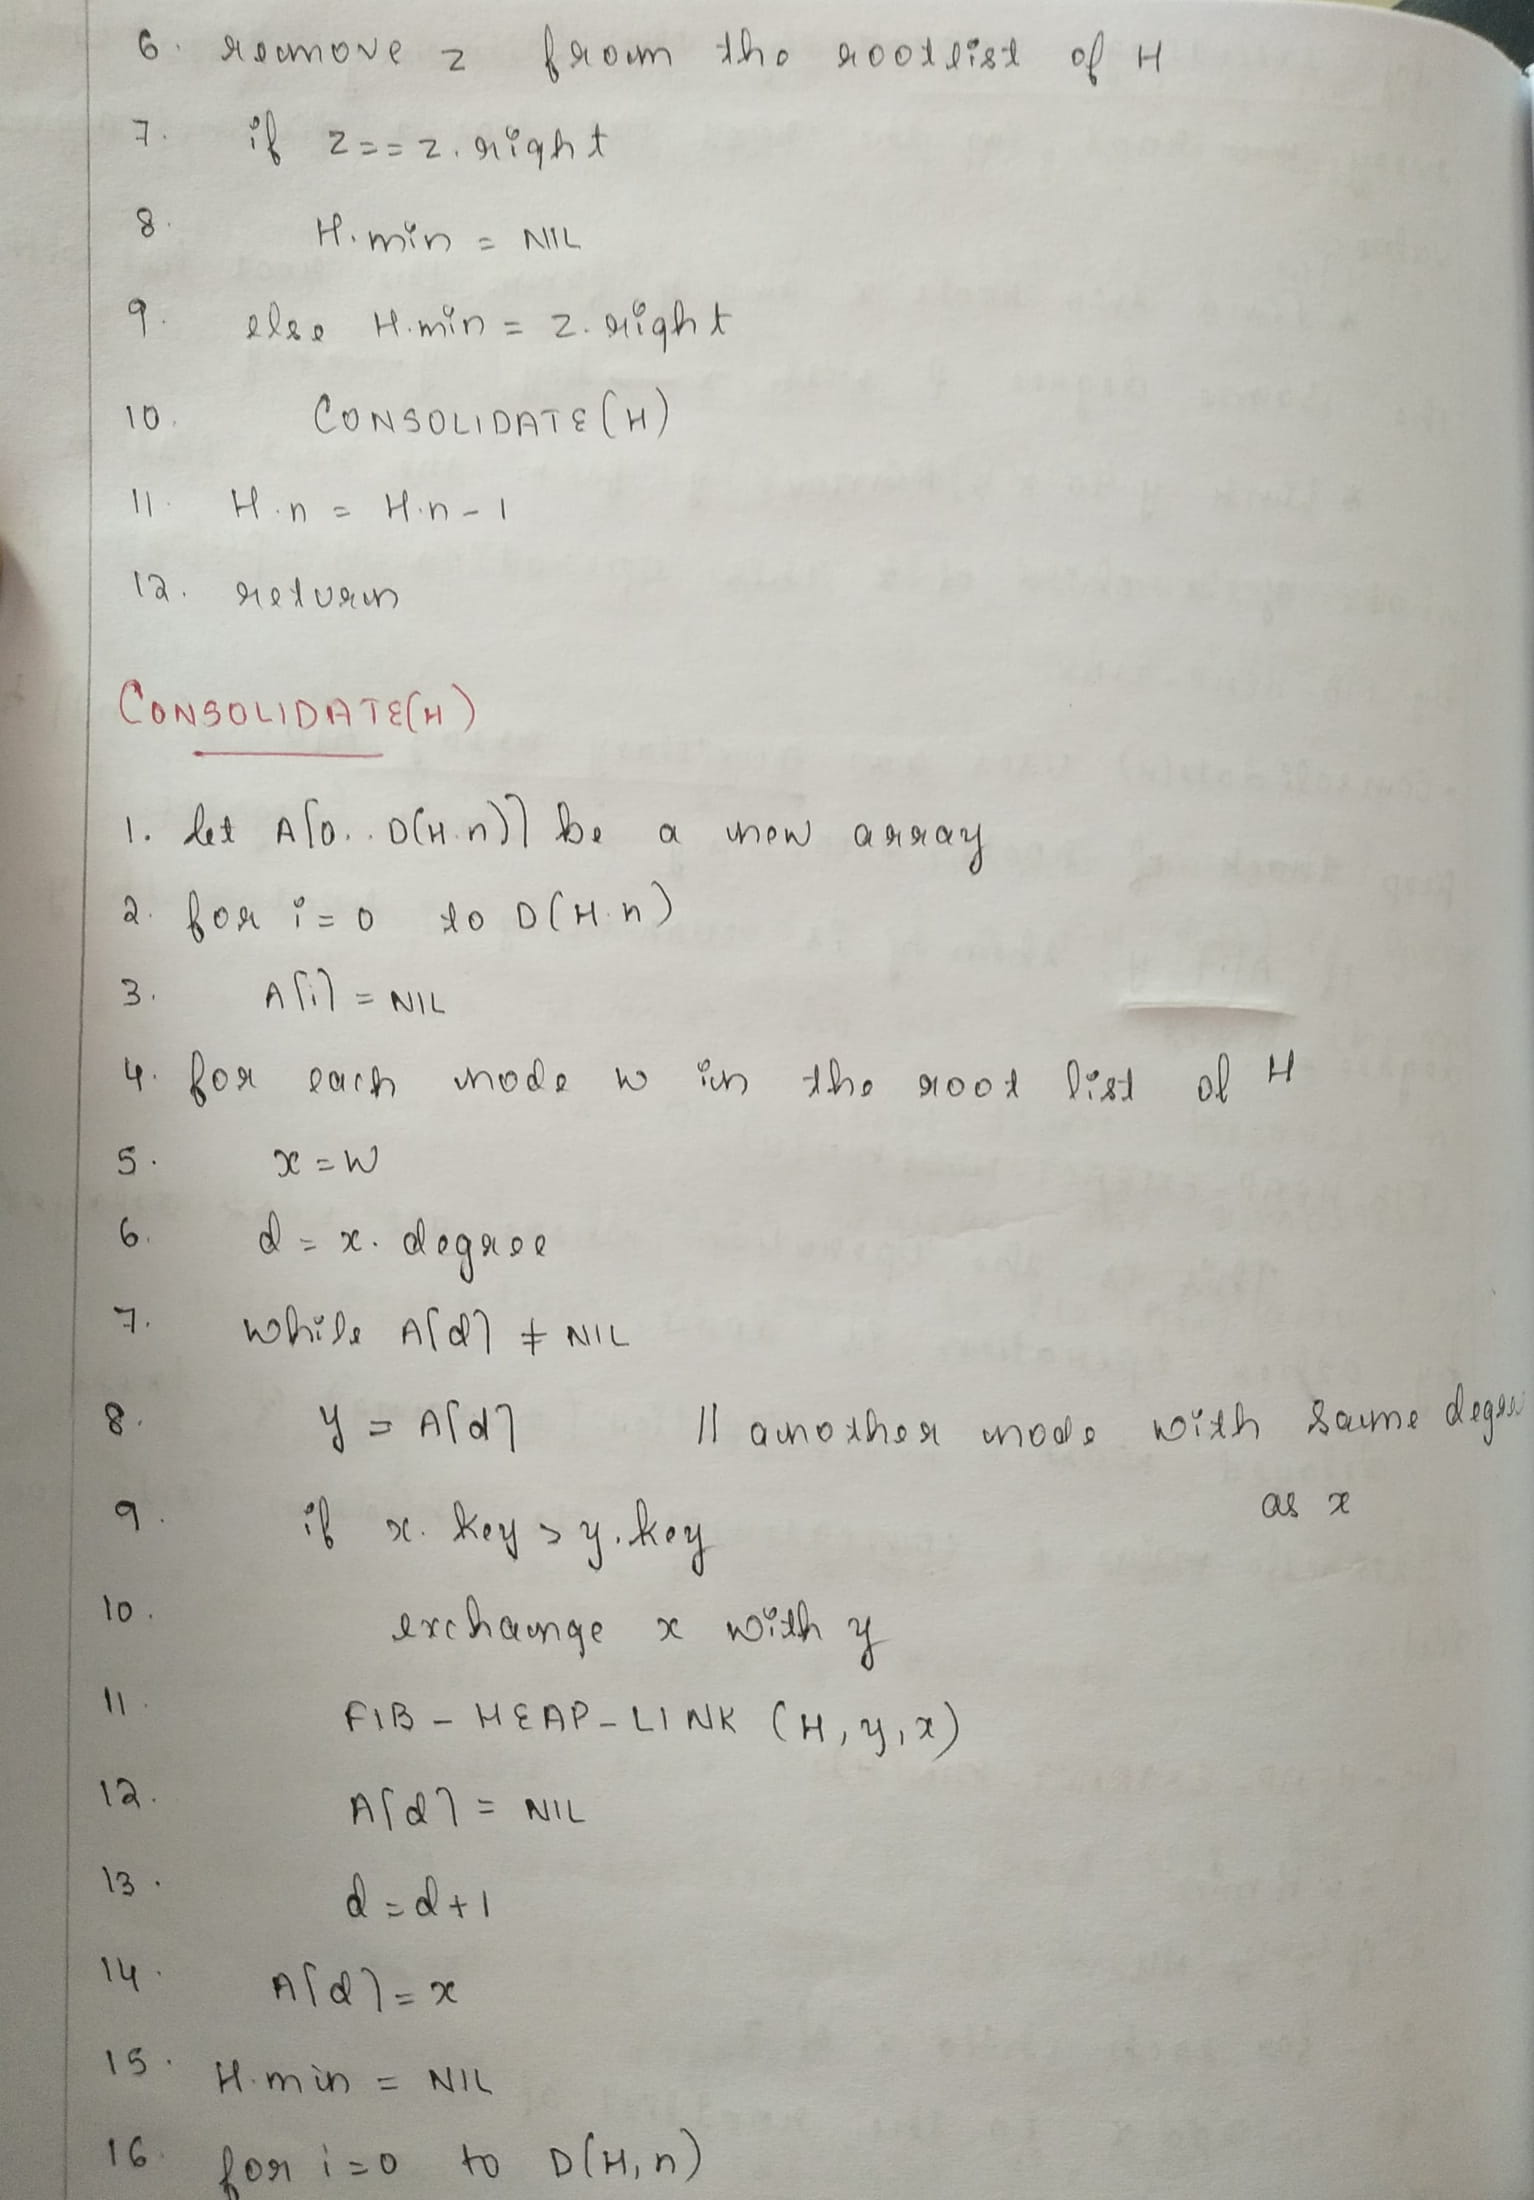 6. remove z from the rootlist of H
7. if z==z.right
8. H.min = NIL
9. else H.min = z.right
10. CONSOLIDATE(H)
11. H.n = H.n-1
12. return
CONSOLIDATE(H)
1. let A[0..D(H.n)] be a new array
2. for i=0 to D(H.n)
3. A[i] = NIL
4. for each node w in the root list of H
5. x=w
6. d=x.degree
7. while A[d] ≠ NIL
8. y = A[d] // another node with same degree
as x
9. if x.key > y.key
10. exchange x with y
11. FIB-HEAP-LINK (H,y,x)
12. A[d] = NIL
13. d=d+1
14. A[d]=x
15. H.min = NIL
16. for i=0 to D(H,n)